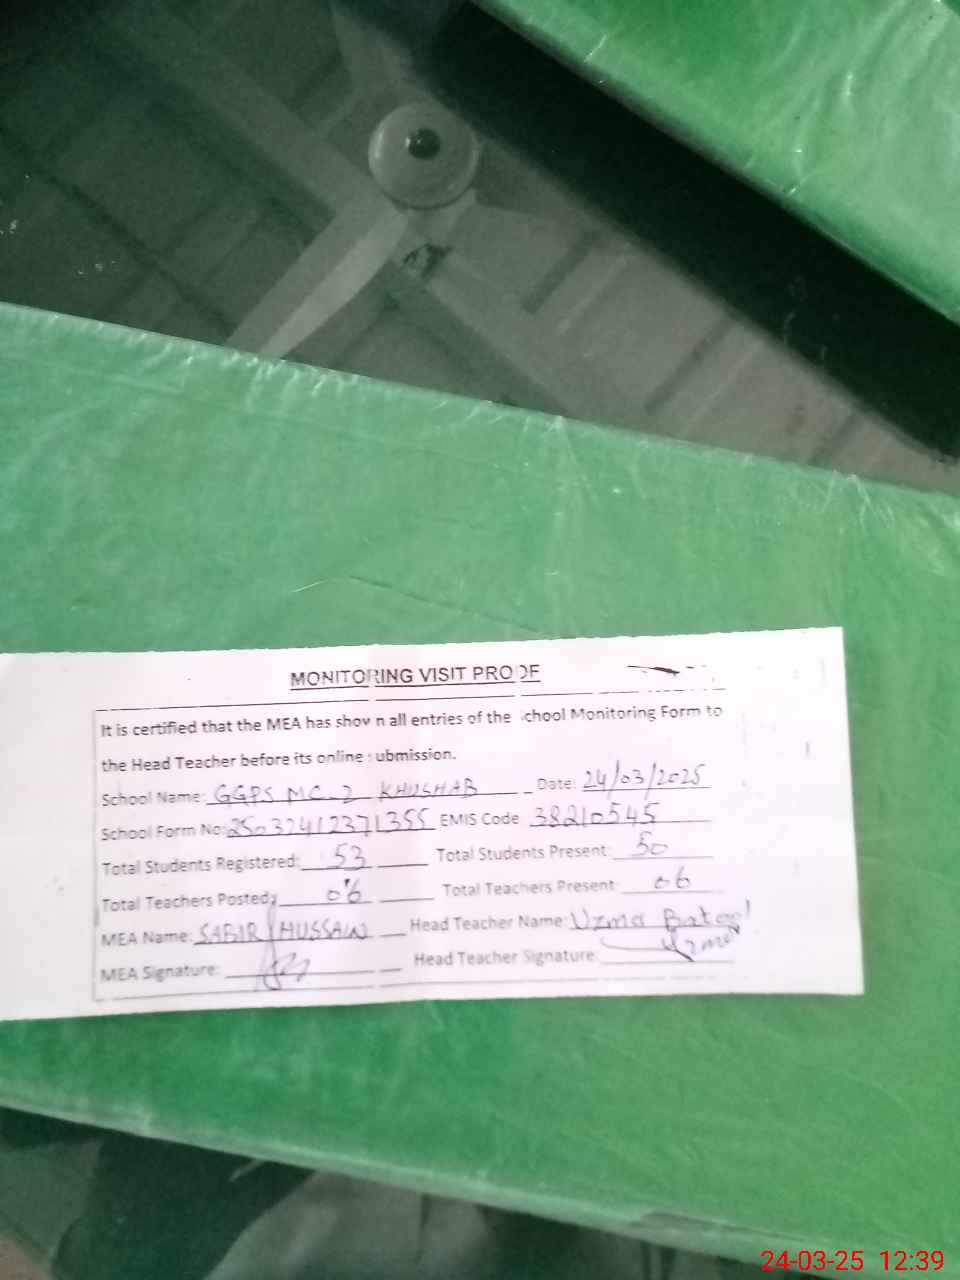 MONITORING VISIT PROOF
It is certified that the MEA has shown all entries of the School Monitoring Form to
the Head Teacher before its online submission.
School Name: GGPS MC-2 KHUSHAB Date: 24/03/2025
School Form No: 25032412371355 EMIS Code 38210545
Total Students Registered: 53 Total Students Present: 50
Total Teachers Posted: 06 Total Teachers Present: 06
MEA Name: SABIR HUSSAIN Head Teacher Name: Uzma Batool
MEA Signature: Head Teacher Signature: Uzma
24-03-25 12:39